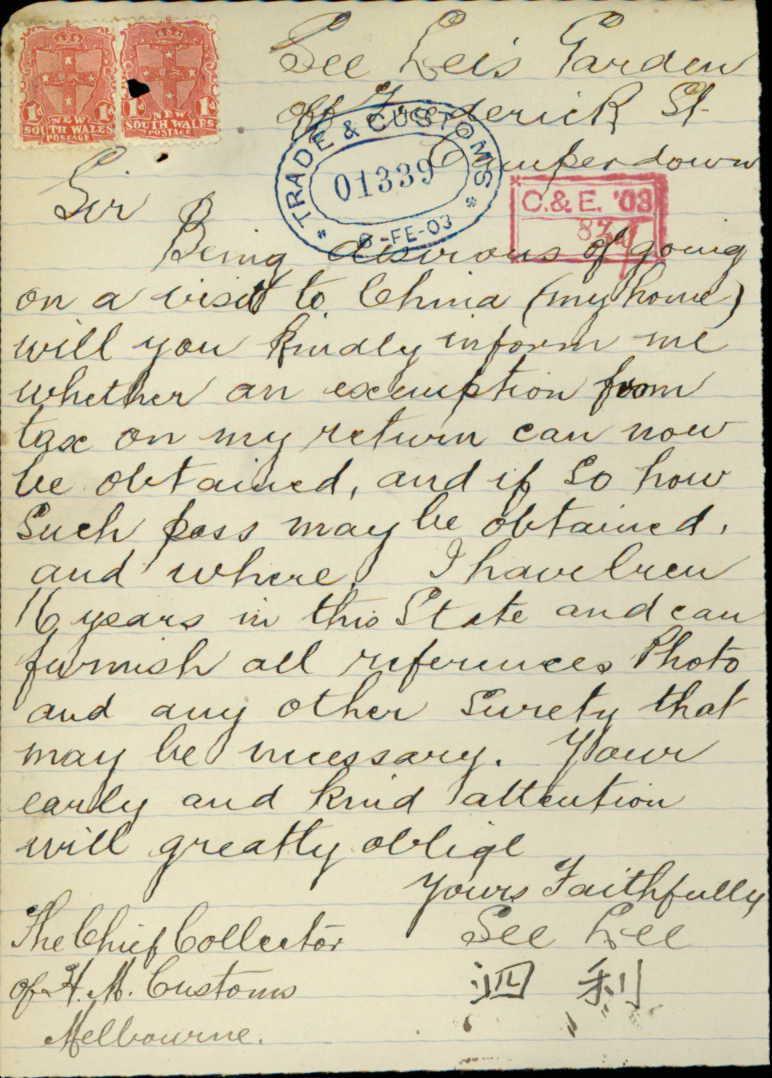 1d NEW SOUTH WALES POSTAGE 1d
1d NEW SOUTH WALES POSTAGE 1d
See Lee's Garden
off Frederick St
Camperdown
TRADE & CUSTOMS
01339
6-FE-03
C.& E. '03
Sir
Being desirous of going
on a visit to China (my home)
will you kindly inform me
whether an exemption from
tax on my return can now
be obtained, and if so how
Such pass may be obtained,
and where. I have been
16 years in this State and can
furnish all references Photo
and any other Surety that
may be necessary. Your
early and kind attention
will greatly oblige
Yours Faithfully
See Lee
泗利
The Chief Collector
of H.M. Customs
Melbourne.